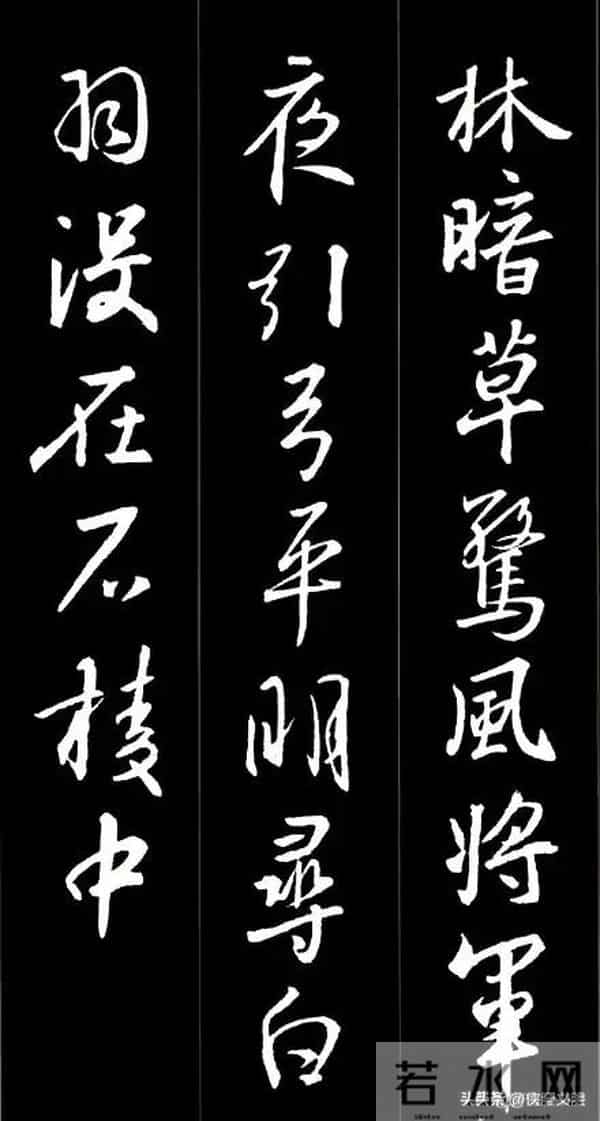 林暗草驚風將軍
夜引弓平明尋白
羽没在石棱中
若水网
头条@侠